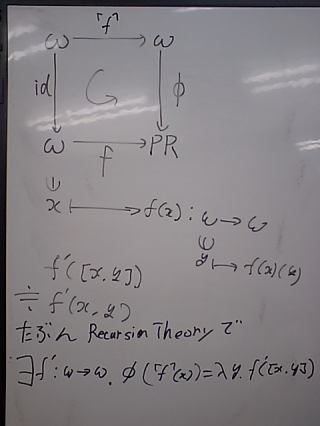 「f」
ω → ω
id ↓ ↓ φ
ω → PR
f
x ↦ f(x) : ω → ω
y ↦ f(x)(y)
f'([x,y])
≒ f'(x,y)
たぶん Recursion Theory で
∃f':ω→ω. φ(「f」(x))=λy.f'[x,y]